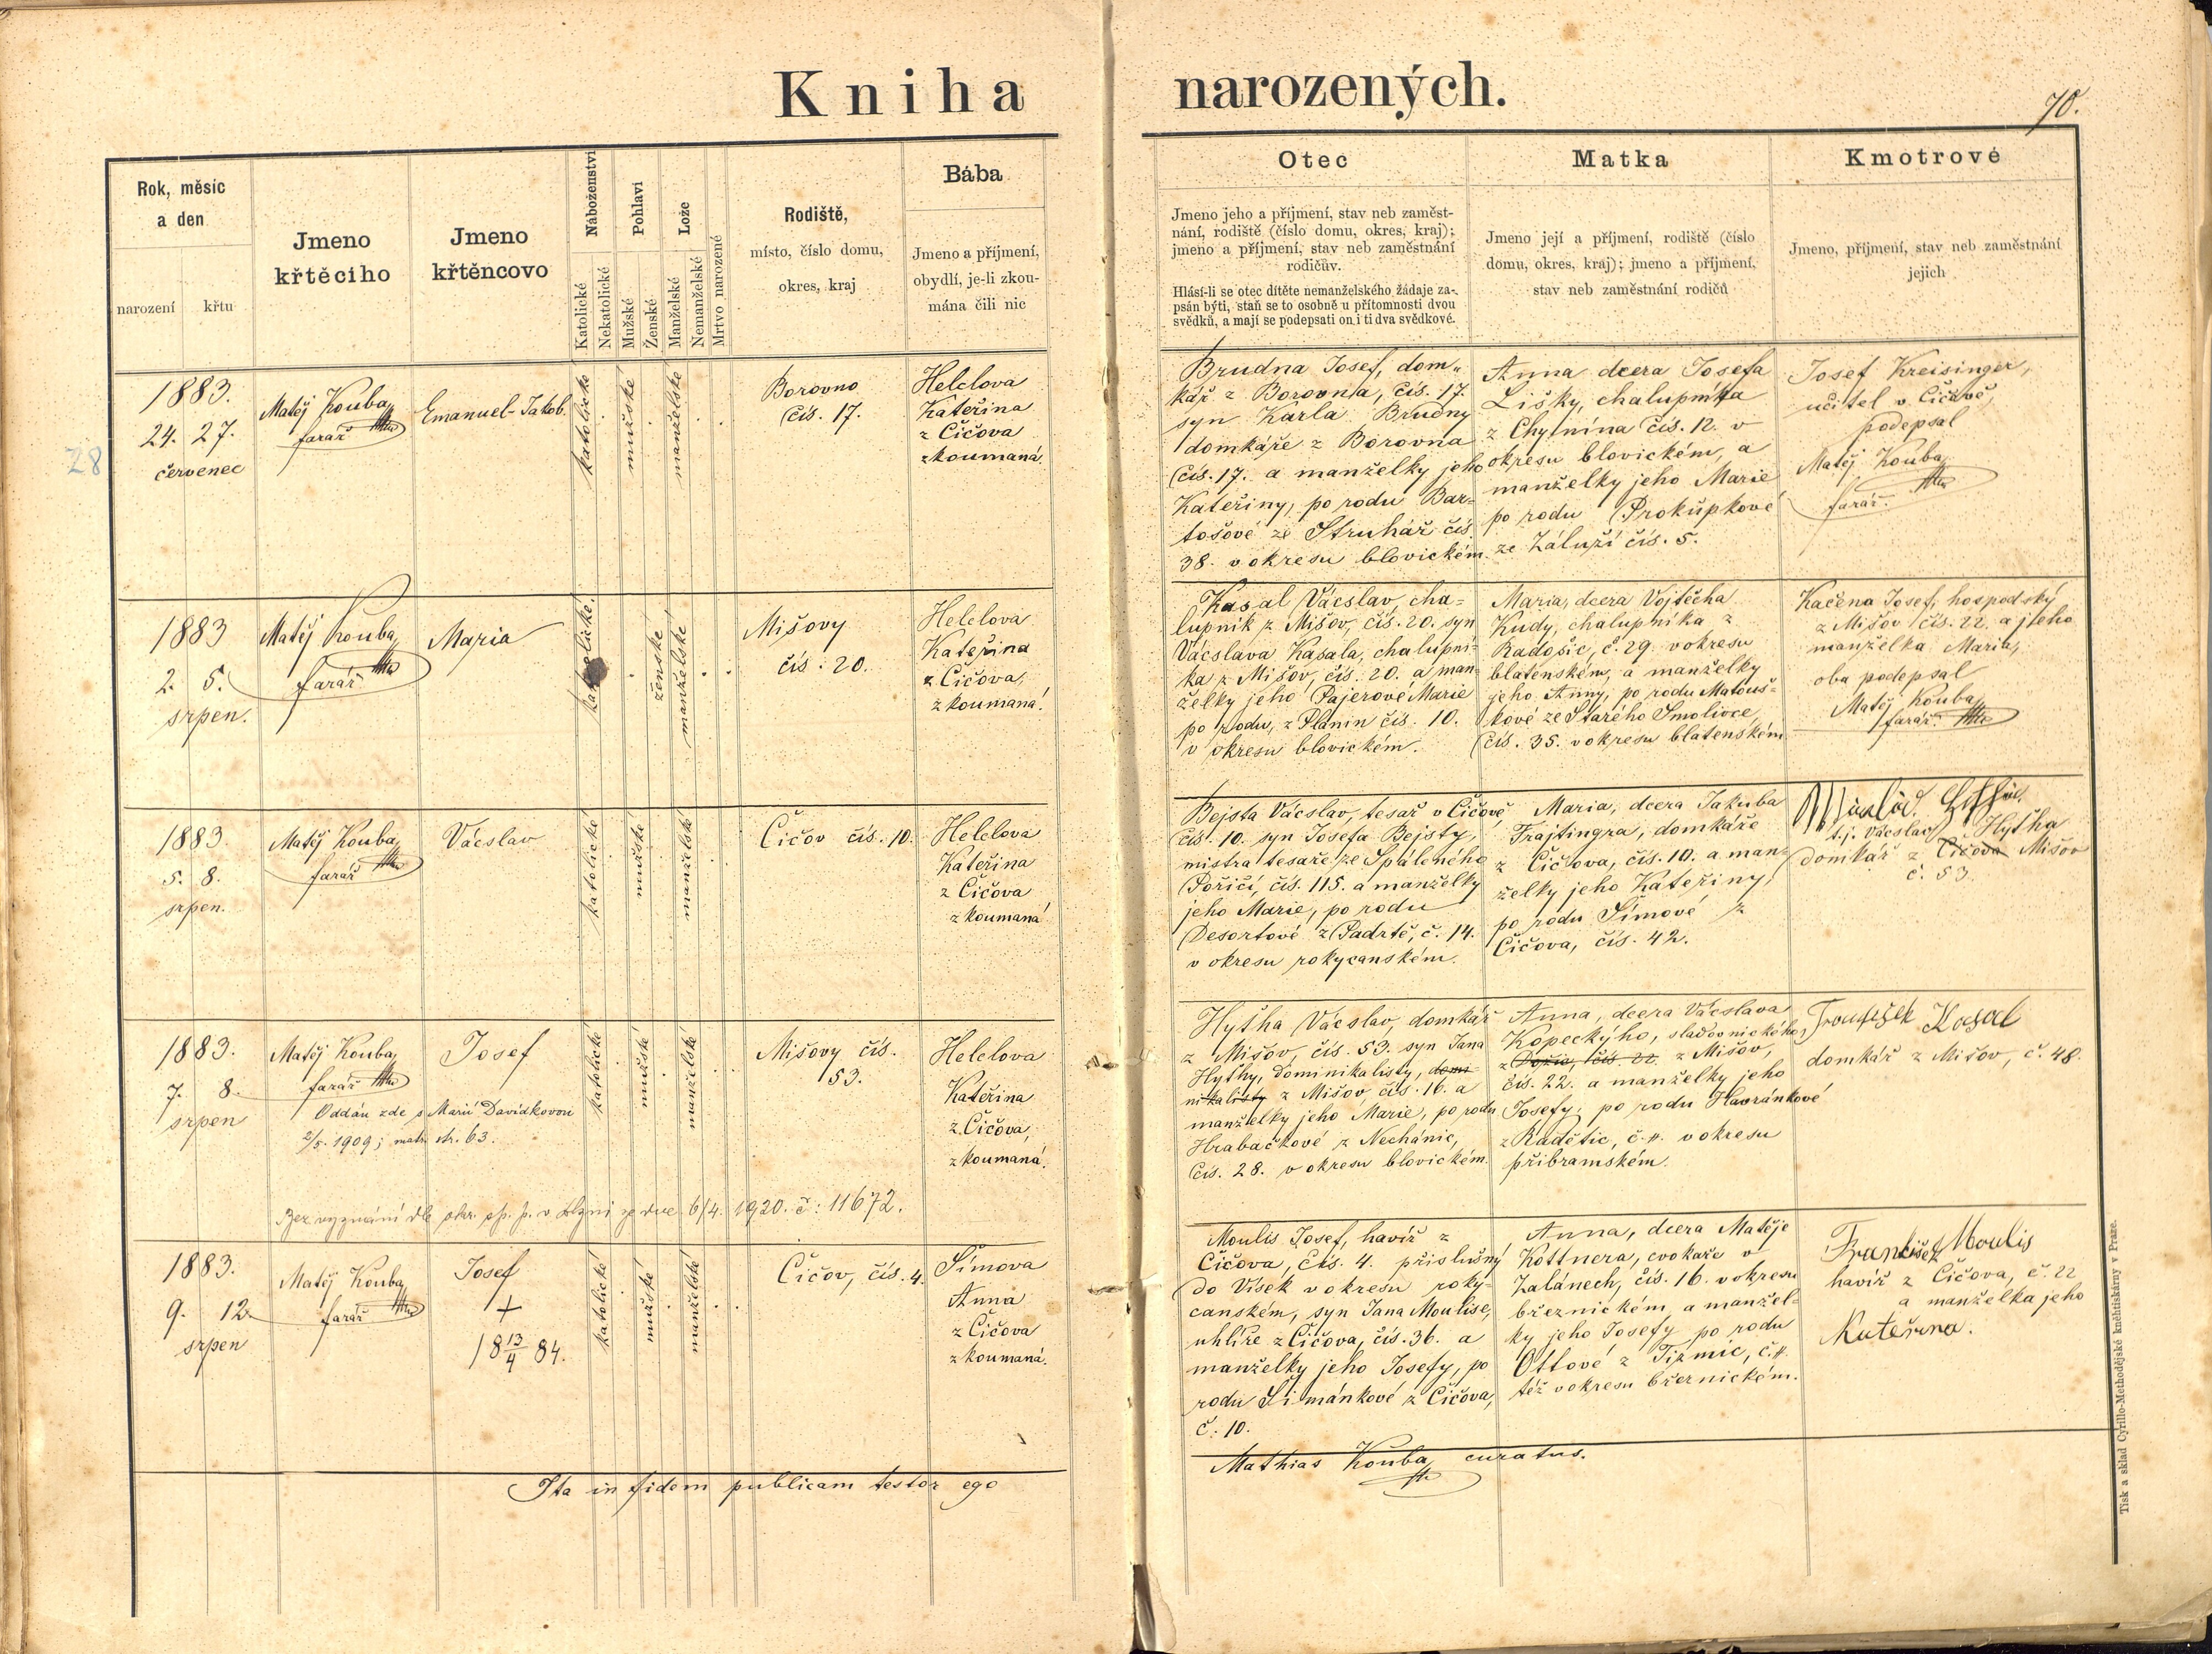 Kniha narozených.
70.
Rok, měsíc
a den
narození
křtu
Jmeno
křtěcího
Jmeno
křtěncovo
Náboženství
Katolické
Nekatolické
Pohlaví
Mužské
Ženské
Lože
Manželské
Nemanželské
Mrtvo narozené
Rodiště,
místo, číslo domu,
okres, kraj
Bába
Jmeno a příjmení,
obydlí, je-li zkou-
mána čili nic
Otec
Jmeno jeho a příjmení, stav neb zaměst-
nání, rodiště (číslo domu, okres, kraj);
jmeno a příjmení, stav neb zaměstnání
rodičův.
Hlásí-li se otec dítěte nemanželského žádaje za-
psán býti, staň se to osobně u přítomnosti dvou
svědků, a mají se podepsati on i ti dva svědkové.
Matka
Jmeno její a příjmení, rodiště (číslo
domu, okres, kraj); jmeno a příjmení,
stav neb zaměstnání rodičů
Kmotrové
Jmeno, příjmení, stav neb zaměstnání
jejich
28
1883.
24. 27.
červenec
Matěj Kouba
farář
Emanuel-Jakob.
katolické
mužské
manželské
Borovno
čís. 17.
Helclova
Kateřina
z Čičova
zkoumaná.
Brudna Josef, dom„
kář z Borovna, čís. 17.
syn Karla Brudny
domkáře z Borovna
čís. 17. a manželky jeho
Kateřiny, po rodu Bar-
tošové ze Struhař čís.
38. v okresu blovickém.
Anna dcera Josefa
Lišky, chalupníka
z Chylnína čís. 12. v
okresu blovickém, a
manželky jeho Marie
po rodu Prokůpkové
ze Záluží čís. 5.
Josef Kreisinger,
učitel v Čičově,
podepsal
Matěj Kouba
farář.
1883
2. 5.
srpen.
Matěj Kouba
farář.
Maria
katolické.
ženské
manželské
Mišovy
čís. 20.
Helclova
Kateřina
z Čičova,
zkoumaná.
Kasal Vácslav, cha-
lupník z Mišov, čís. 20. syn
Vácslava Kasala, chalupní-
ka z Mišov, čís. 20. a man-
želky jeho Pajerové Marie
po rodu, z Planin čís. 10.
v okresu blovickém.
Maria, dcera Vojtěcha
Kudy, chalupníka z
Radošic, č. 29. v okresu
blatenském, a manželky
jeho Anny, po rodu Matouš-
kové ze Starého Smolivce,
čís. 35. v okresu blatenském
Kačena Josef, hospodský
z Mišov čís. 22. a jeho
manželka Maria,
oba podepsal
Matěj Kouba
farář.
1883.
5. 8.
srpen.
Matěj Kouba
farář
Vácslav
katolické
mužské
manželské
Čičov čís. 10.
Helclova
Kateřina
z Čičova
zkoumaná
Bejsta Vácslav, tesař v Čičově
čís. 10. syn Josefa Bejsty,
mistra tesaře ze Spáleného
Poříčí, čís. 115. a manželky
jeho Marie, po rodu
Desortové z Padrtě, č. 14.
v okresu rokycanském.
Maria, dcera Jakuba
Frajtingra, domkáře
z Čičova, čís. 10. a man-
želky jeho Kateřiny,
po rodu Šímové z
Čičova, čís. 42.
t.j. Vácslav Hytha
domkář z Čičova Mišov
č. 53.
1883.
7. 8.
srpen
Matěj Kouba
farář
Josef
Oddán zde s Marií Davídkovou
2/5. 1909; matr. str. 63.
katolické
mužské
manželské
Mišovy čís.
53.
Helclova
Kateřina
z Čičova,
zkoumaná.
Hytha Vácslav, domkář
z Mišov, čís. 53. syn Jana
Hythy, dominikalisty, domi
nikalisty z Mišov, čís. 16. a
manželky jeho Marie, po rodu
Hrabačkové z Nechánic,
čís. 28. v okresu blovickém.
Anna, dcera Vácslava
Kopeckýho, sladovnického
z Mišov,
čís. 22. a manželky jeho
Josefy, po rodu Havránkové
z Radětic, č. 11. v okresu
příbramském.
František Kasal
domkář z Mišov, č. 48.
Bez vyznání dle okr. sp. p. v Plzni ze dne 6/4. 1920. č: 11672.
1883.
9. 12.
srpen
Matěj Kouba
farář
Josef
+
18 13/4 84.
katolické
mužské
manželské
Čičov, čís. 4.
Šímova
Anna
z Čičova
zkoumaná.
Moulis Josef, havíř z
Čičova, čís. 4. příslušný
do Vísek v okresu roky-
canském, syn Jana Moulise,
uhlíře z Čičova, čís. 36. a
manželky jeho Josefy, po
rodu Šimánkové z Čičova,
č. 10.
Anna, dcera Matěje
Kottnera, cvokaře v
Zalánech, čís. 16. v okresu
březnickém, a manžel-
ky jeho Josefy po rodu
Ottové z Tizmic, č. 11.
též v okresu březnickém.
František Moulis
havíř z Čičova, č. 22
a manželka jeho
Kateřina.
Ita in fidem publicam testor ego
Mathias Kouba curatus.
Tisk a sklad Cyrillo-Methodějské kněhtiskárny v Praze.